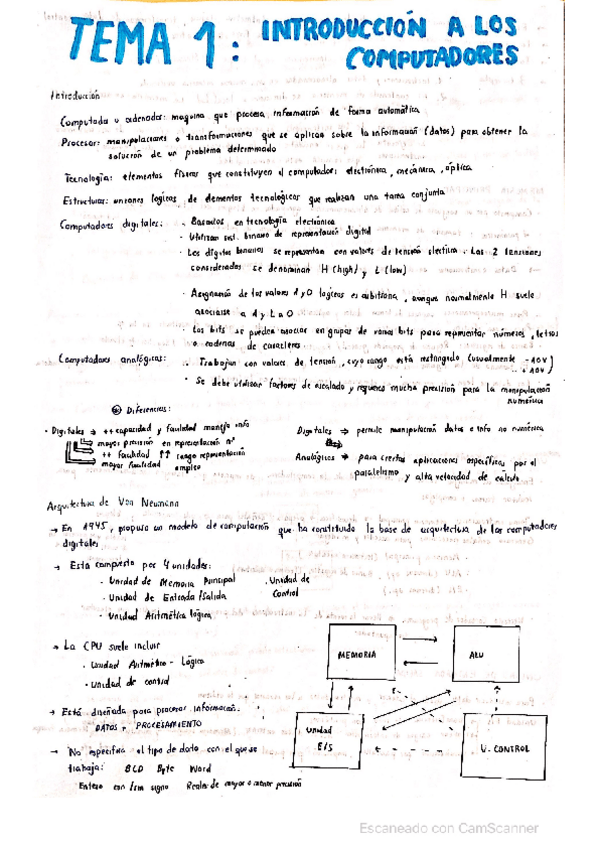 TEMA 1: INTRODUCCIÓN A LOS
COMPUTADORES
Introducción
Computada u ordenador: maquina que procesa información de forma automática
Procesar: manipulaciones o transformaciones que se aplican sobre la información (datos) para obtener la
solución de un problema determinado
Tecnología: elementos físicos que constituyen el computador: electrónica, mecánica, óptica
Estructuras: uniones logicas de elementos tecnológicos que realizan una tarea conjunta
Computadores digitales: · Basados en tecnología electrónica
· Utilizan sist. binario de representación digital
· Los dígitos binarios se representan con valores de tensión electrica. Las 2 tensiones
consideradas se denominan H (high) y L (low)
· Asignación de los valores 1 y 0 logicos es arbitraria, aunque normalmente H suele
asociarse a 1 y L a 0
· Los bits se pueden asociar en grupos de varios bits para representar números, letras
o cadenas de caracteres
Computadores analógicos: · Trabajan con valores de tensión, cuyo rango está restringido (usualmente -10V
+10V)
· Se debe utilizar factores de escalado y requieres mucha precisión para la manipulación
numérica
Diferencias:
· Digitales → ++ capacidad y facilidad manejo info
mayor precisión en representación nº
++ facilidad ↑↑ rango representación
mayor facilidad empleo
Digitales → permite manipulación datos e info no numérica
Analógicos → para ciertas aplicaciones específicas por el
paralelismo y alta velocidad de calculo
Arquitectura de Von Neumann
→ En 1945, propuso un modelo de computación que ha constituido la base de arquitectura de los computadores
digitales
→ Esta compuesto por 4 unidades:
· Unidad de Memoria Principal · Unidad de
· Unidad de Entrada/Salida Control
· Unidad Aritmética lógica
→ La CPU suele incluir
· Unidad Aritmético - Lógica
· Unidad de control
→ Está diseñada para procesar información:
DATOS + PROCESAMIENTO
→ No especifica el tipo de dato con el que se
trabaja: BCD Byte Word
Entero con/sin signo Reales de mayor o menor precisión
MEMORIA
ALU
Unidad
E/S
U. CONTROL
Escaneado con CamScanner